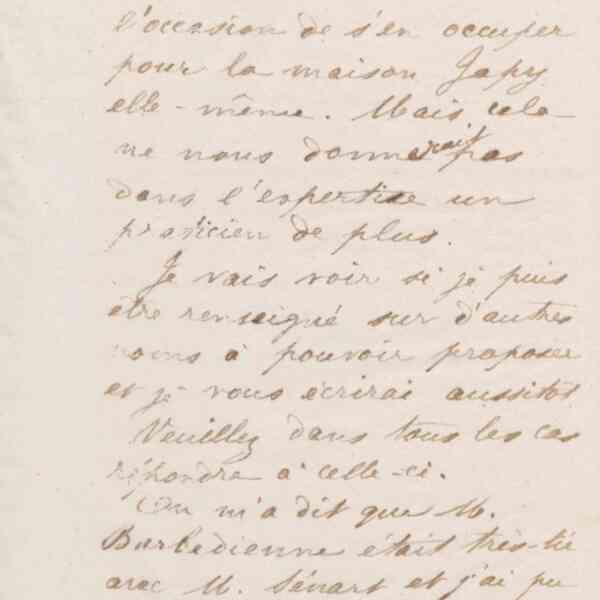 l'occasion de s'en occuper
pour la maison Japy
elle-même. Mais cela
ne nous donnerait pas
dans l'expertise un
praticien de plus.
Je vais voir si je puis
être renseigné sur d'autres
noms à pouvoir proposer
et je vous écrirai aussitôt
Veuillez dans tous les cas
répondre à celle-ci.
On m'a dit que M.
Barbedienne était très-lié
avec M. Sénart et j'ai pu